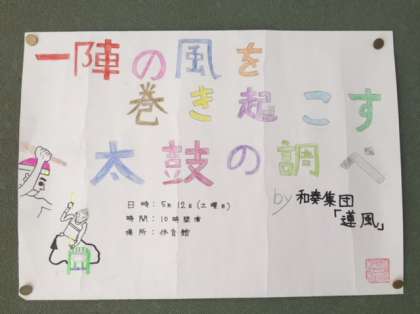 一陣の風を
巻き起こす
太鼓の調べ
by 和奏集団
「道風」
日時：5月12日(土曜日)
時間：10時開演
場所：体育館